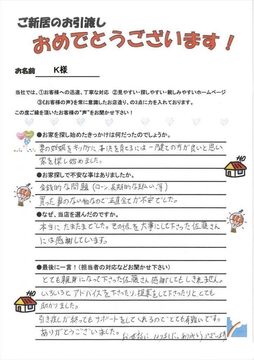 ご新居のお引渡し
おめでとうございます！
お名前 K様
当社では、①お客様への迅速、丁寧な対応 ②見やすい・探しやすい・親しみやすいホームページ
③《お客様の声》を常に意識したお店造り、の3点に力を入れております。
この度ご縁を頂いたお客様の"声"をお聞かせ下さい！
●お家を探し始めたきっかけは何だったのでしょうか。
家を探し始めました。
●お家探しで不安な事はありましたか。
金銭的な問題（ローン、長期的な払い、等）
●なぜ、当店を選んだのですか。
本当にたまたまでした。その後、大事にして下さった佐藤さん
には感謝しています。
●最後に一言！（担当者の対応などお聞かせ下さい）
とても親身になって下さった佐藤さん感謝してもしきれません。
いろいろとアドバイスを下さったり、提案をして下さったりととても
助かりました。
引き渡しが終ってもサポートをしてくれるのでとても有難いです。
ありがとうございました。